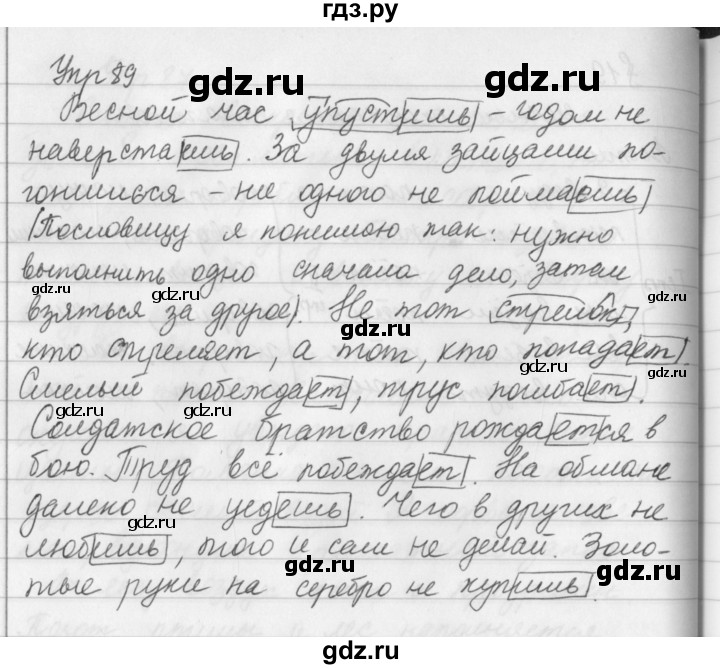 гдз.ру
Упр 89
gdz.ru gdz.ru
Весной час упустишь - годом не
наверстаешь. За двумя зайцами по-
гонишься - ни одного не поймаешь
gdz.ru gdz.ru
(Пословицу я понимаю так: нужно
выполнить одно сначала дело, затем
gdz.ru gdz.ru gdz.ru
взяться за другое). Не тот стрелок,
gdz.ru gdz.ru
кто стреляет, а тот, кто попадает.
gdz.ru
Смелый побеждает, трус погибает.
gdz.ru gdz.ru
Солдатское братство рождается в
бою. Труд всё побеждает. На обмане
gdz.ru gdz.ru
далеко не уедешь. Чего в других не
любишь, того и сам не делай. Золо-
gdz.ru gdz.ru
тые руки на серебро не купишь.